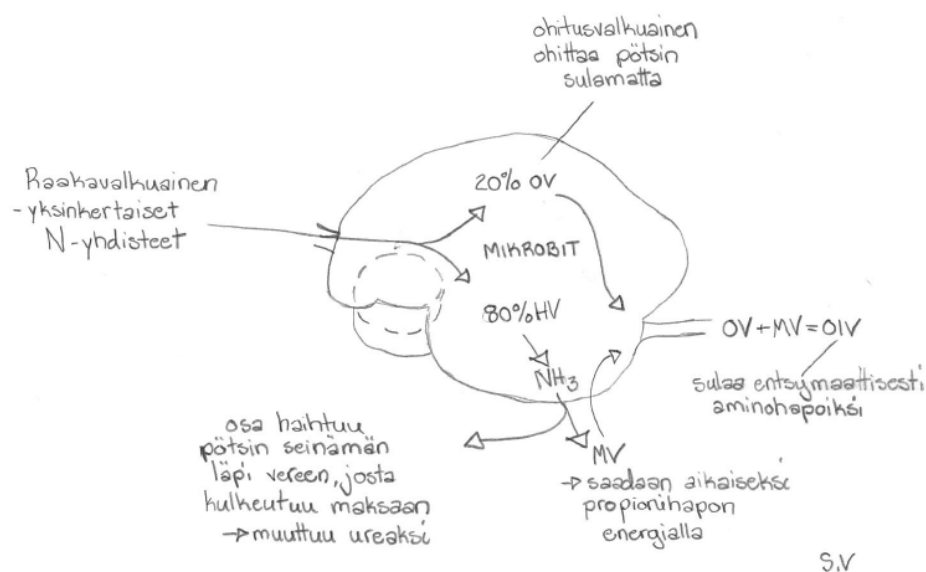 ohitusvalkuainen
ohittaa pötsin
sulamatta
Raakavalkuainen
-yksinkertaiset
N-yhdisteet
20% OV
MIKROBIT
80% HV
NH₃
OV+MV=OIV
sulaa entsymaattisesti
aminohapoiksi
osa haihtuu
pötsin seinämän
läpi vereen, josta
kulkeutuu maksaan
→ muuttuu ureaksi
MV
→ saadaan aikaiseksi
propionihapon
energialla
S.V